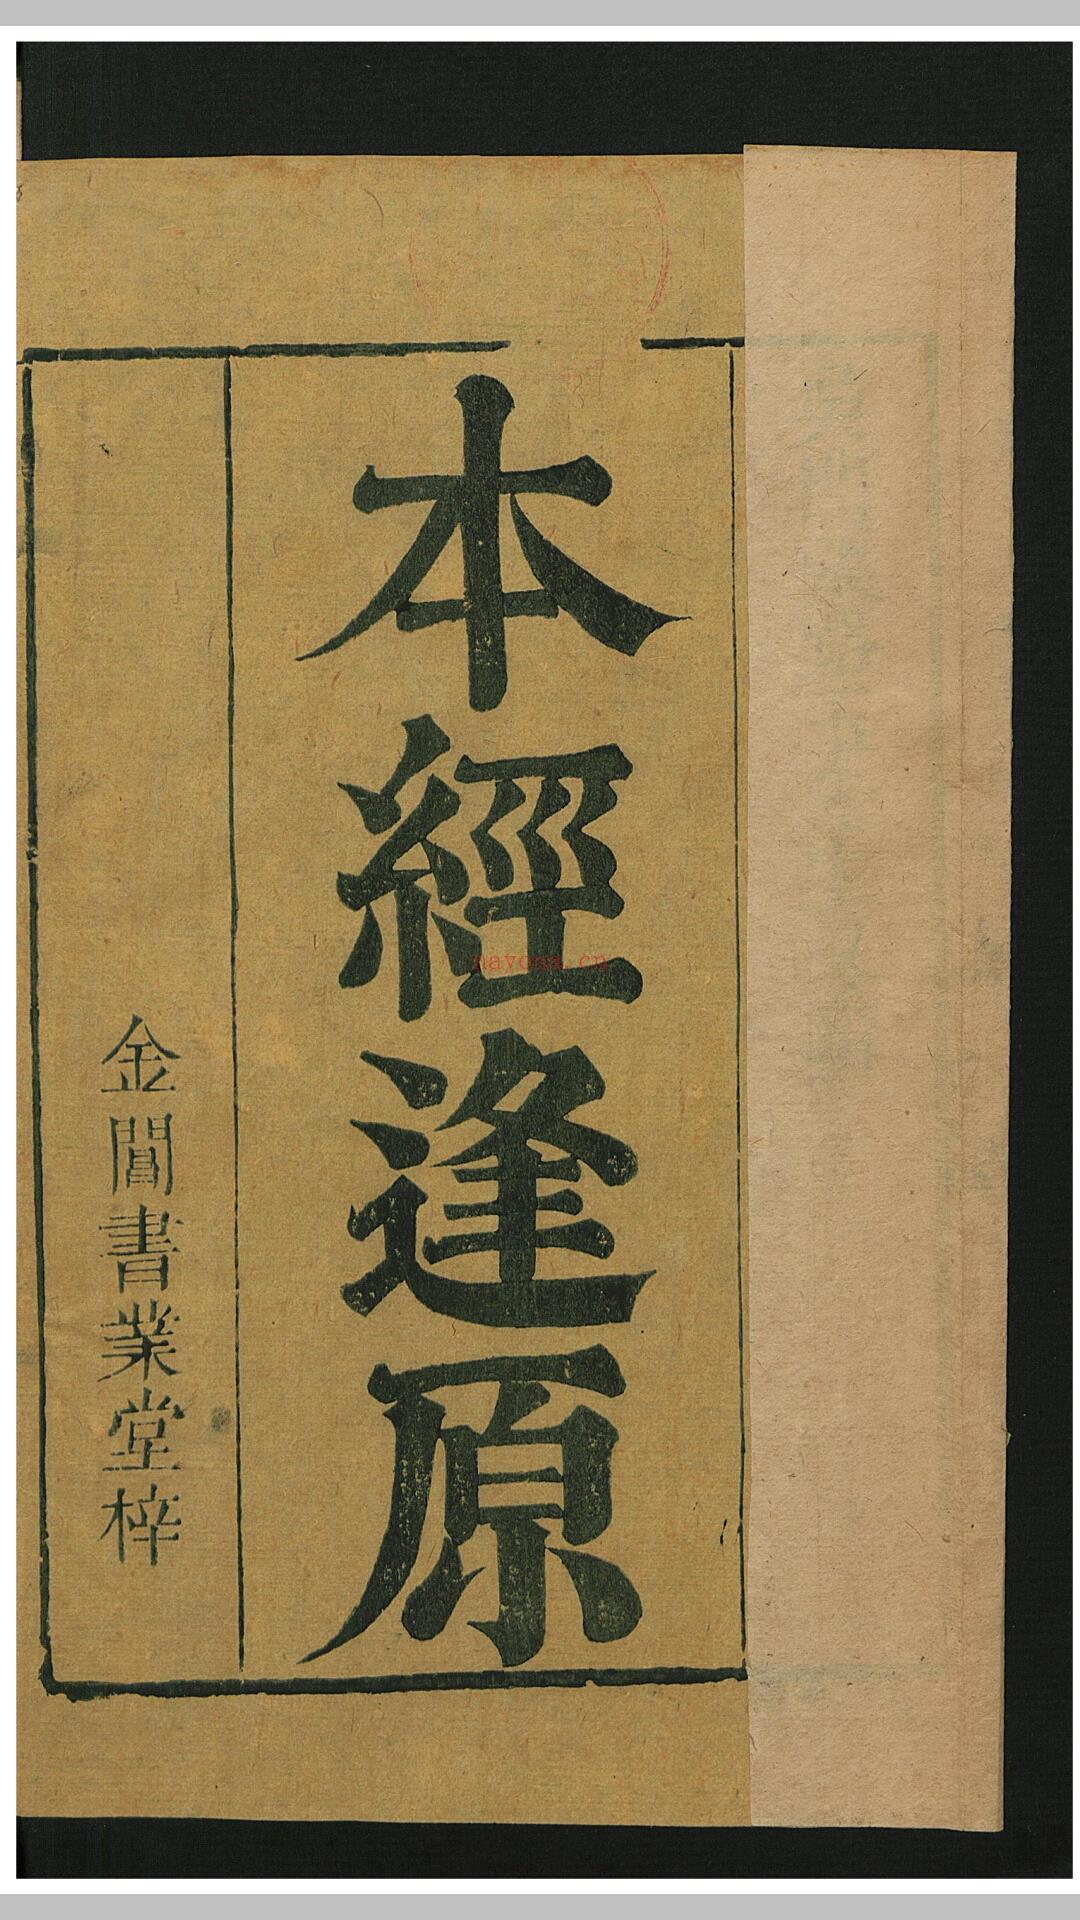 本經逢原
金閶書業堂梓
nayona.cn